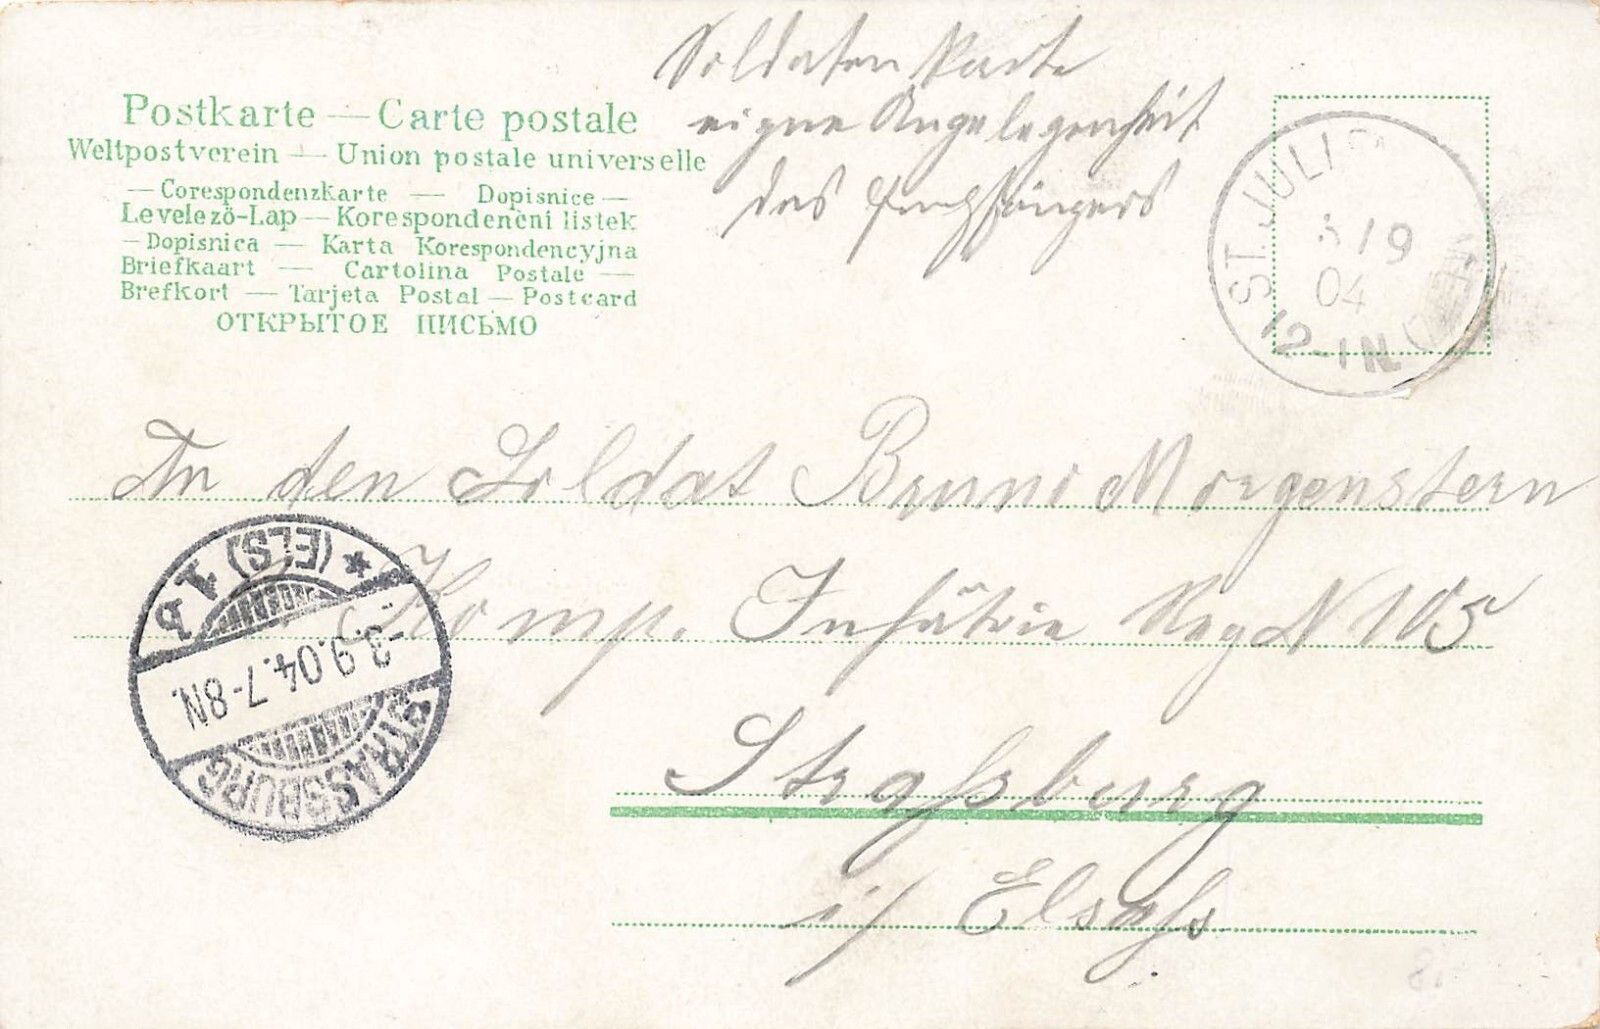 Soldaten Karte
eigne Angelegenheit
des Empfängers
Postkarte — Carte postale
Weltpostverein — Union postale universelle
— Corespondenzkarte — Dopisnice —
Levelezö-Lap — Korespondencni listek
— Dopisnica — Karta Korespondencyjna
Briefkaart — Cartolina Postale —
Brefkort — Tarjeta Postal — Postcard
ОТКРЫТОЕ ПИСЬМО
ST. JULI
3/9
04
12-1N
An den Soldat Bruno Morgenstern
Komp. Infâtrie Reg N 105
Straßburg
i/ Elsaß
STRASSBURG
-3.9.04.7-8N.
* (ELS) 1 b